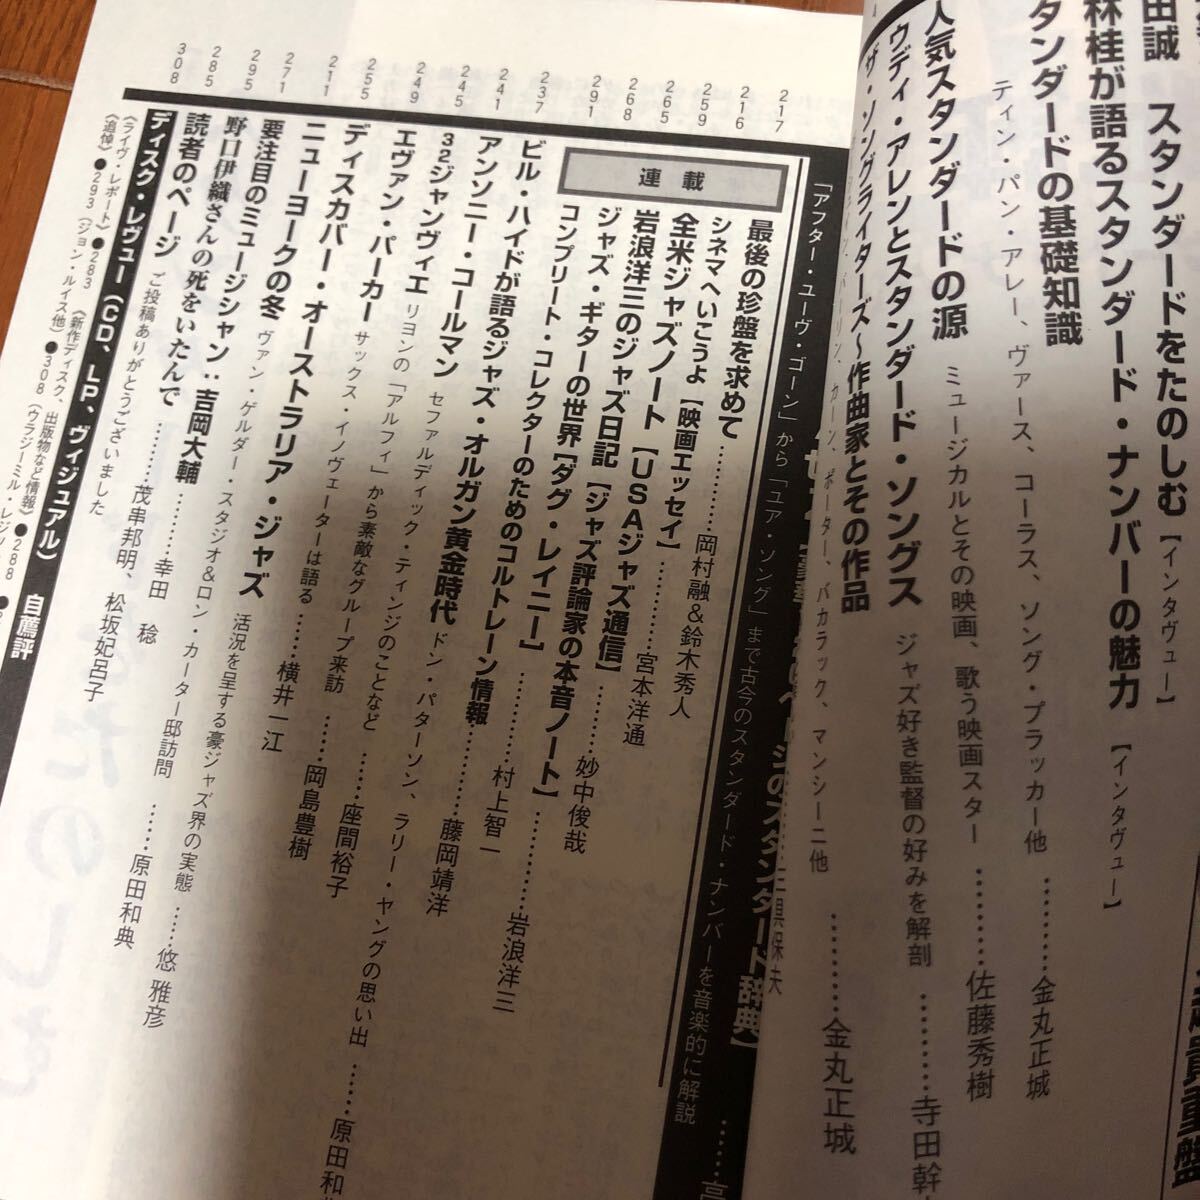 田誠 スタンダードをたのしむ【インタヴュー】
林桂が語るスタンダード・ナンバーの魅力【インタヴュー】
タンダードの基礎知識
ティン・パン・アレー、ヴァース、コーラス、ソング・プラッカー他 ………金丸正城
人気スタンダードの源 ミュージカルとその映画、歌う映画スター ………佐藤秀樹
ウディ・アレンとスタンダード・ソングス ジャズ好き監督の好みを解剖 ………寺田幹
ザ・ソングライターズ〜作曲家とその作品
カーン、ポーター、バカラック、マンシーニ他 ………金丸正城
のスタンダード辞典】
「アフター・ユーヴ・ゴーン」から「ユア・ソング」まで古今のスタンダード・ナンバーを音楽的に解説 ……高
連載
217 最後の珍盤を求めて ………岡村融&鈴木秀人
216 シネマへいこうよ【映画エッセイ】 ………宮本洋通
259 全米ジャズノート【USAジャズ通信】 ………妙中俊哉
265 岩浪洋三のジャズ日記【ジャズ評論家の本音ノート】 ………岩浪洋三
268 ジャズ・ギターの世界【ダグ・レイニー】 ………村上智一
291 コンプリート・コレクターのためのコルトレーン情報 ………藤岡靖洋
237 ビル・ハイドが語るジャズ・オルガン黄金時代 ドン・パターソン、ラリー・ヤングの思い出 ……原田和
241 アンソニー・コールマン セファルディック・ティンジのことなど ……座間裕子
245 32ジャンヴィエ リヨンの「アルフィ」から素敵なグループ来訪 ……岡島豊樹
249 エヴァン・パーカー サックス・イノヴェーターは語る ……横井一江
255 ディスカバー・オーストラリア・ジャズ 活況を呈する豪ジャズ界の実態 ……悠雅彦
211 ニューヨークの冬 ヴァン・ゲルダー・スタジオ&ロン・カーター邸訪問 ……原田和典
271 要注目のミュージシャン:吉岡大輔 ………幸田稔
295 野口伊織さんの死をいたんで ………茂串邦明、松坂妃呂子
285 読者のページ ご投稿ありがとうございました
308 ディスク・レヴュー(CD、LP、ヴィジュアル) 自薦評
《ライヴ・レポート》●283 《新作ディスク、出版物など情報》●288
《追悼》●293(ジョン・ルイス他)●308(ウラジーミル・レジ